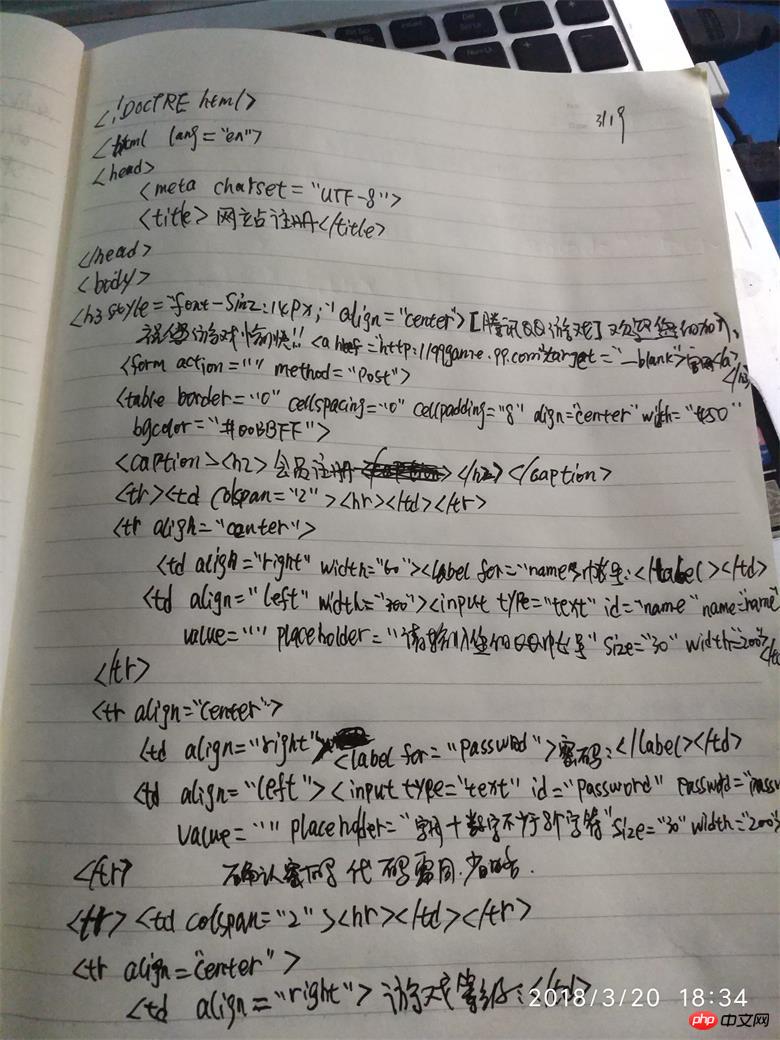 3/19
<!DOCTRE html>
<html lang="en">
<head>
<meta charset="UTF-8">
<title>网站注册</title>
</head>
<body>
<h3 style="font-size:14px;" align="center">[腾讯QQ游戏]欢迎您的加入,
祝您游戏愉快!! <a href=http://99game.99.com"target="_blank">官网</a>
</h3>
<form action="" method="Post">
<table border="0" cellspacing="0" cellpadding="8" align="center" width="450"
bgcolor="#00BBFF">
<caption><h2>会员注册</h2></caption>
<tr><td colspan="2"><hr></td></tr>
<tr align="center">
<td align="right" width="60"><label for="name">帐号:</label></td>
<td align="left" width="300"><input type="text" id="name" name="name"
value="" placeholder="请输入您的QQ帐号" size="30" width="200"></td
</tr>
<tr align="center">
<td align="right"><label for="password">密码:</label></td>
<td align="left"><input type="text" id="Password" password="passw
value="" placeholder="字母+数字不少于8个字符" size="30" width="200">
</tr> 确认密码代码雷同.少略.
<tr><td colspan="2"><hr></td></tr>
<tr align="center">
<td align="right">游戏等级:</td>
2018/3/20 18:34
php 中文网